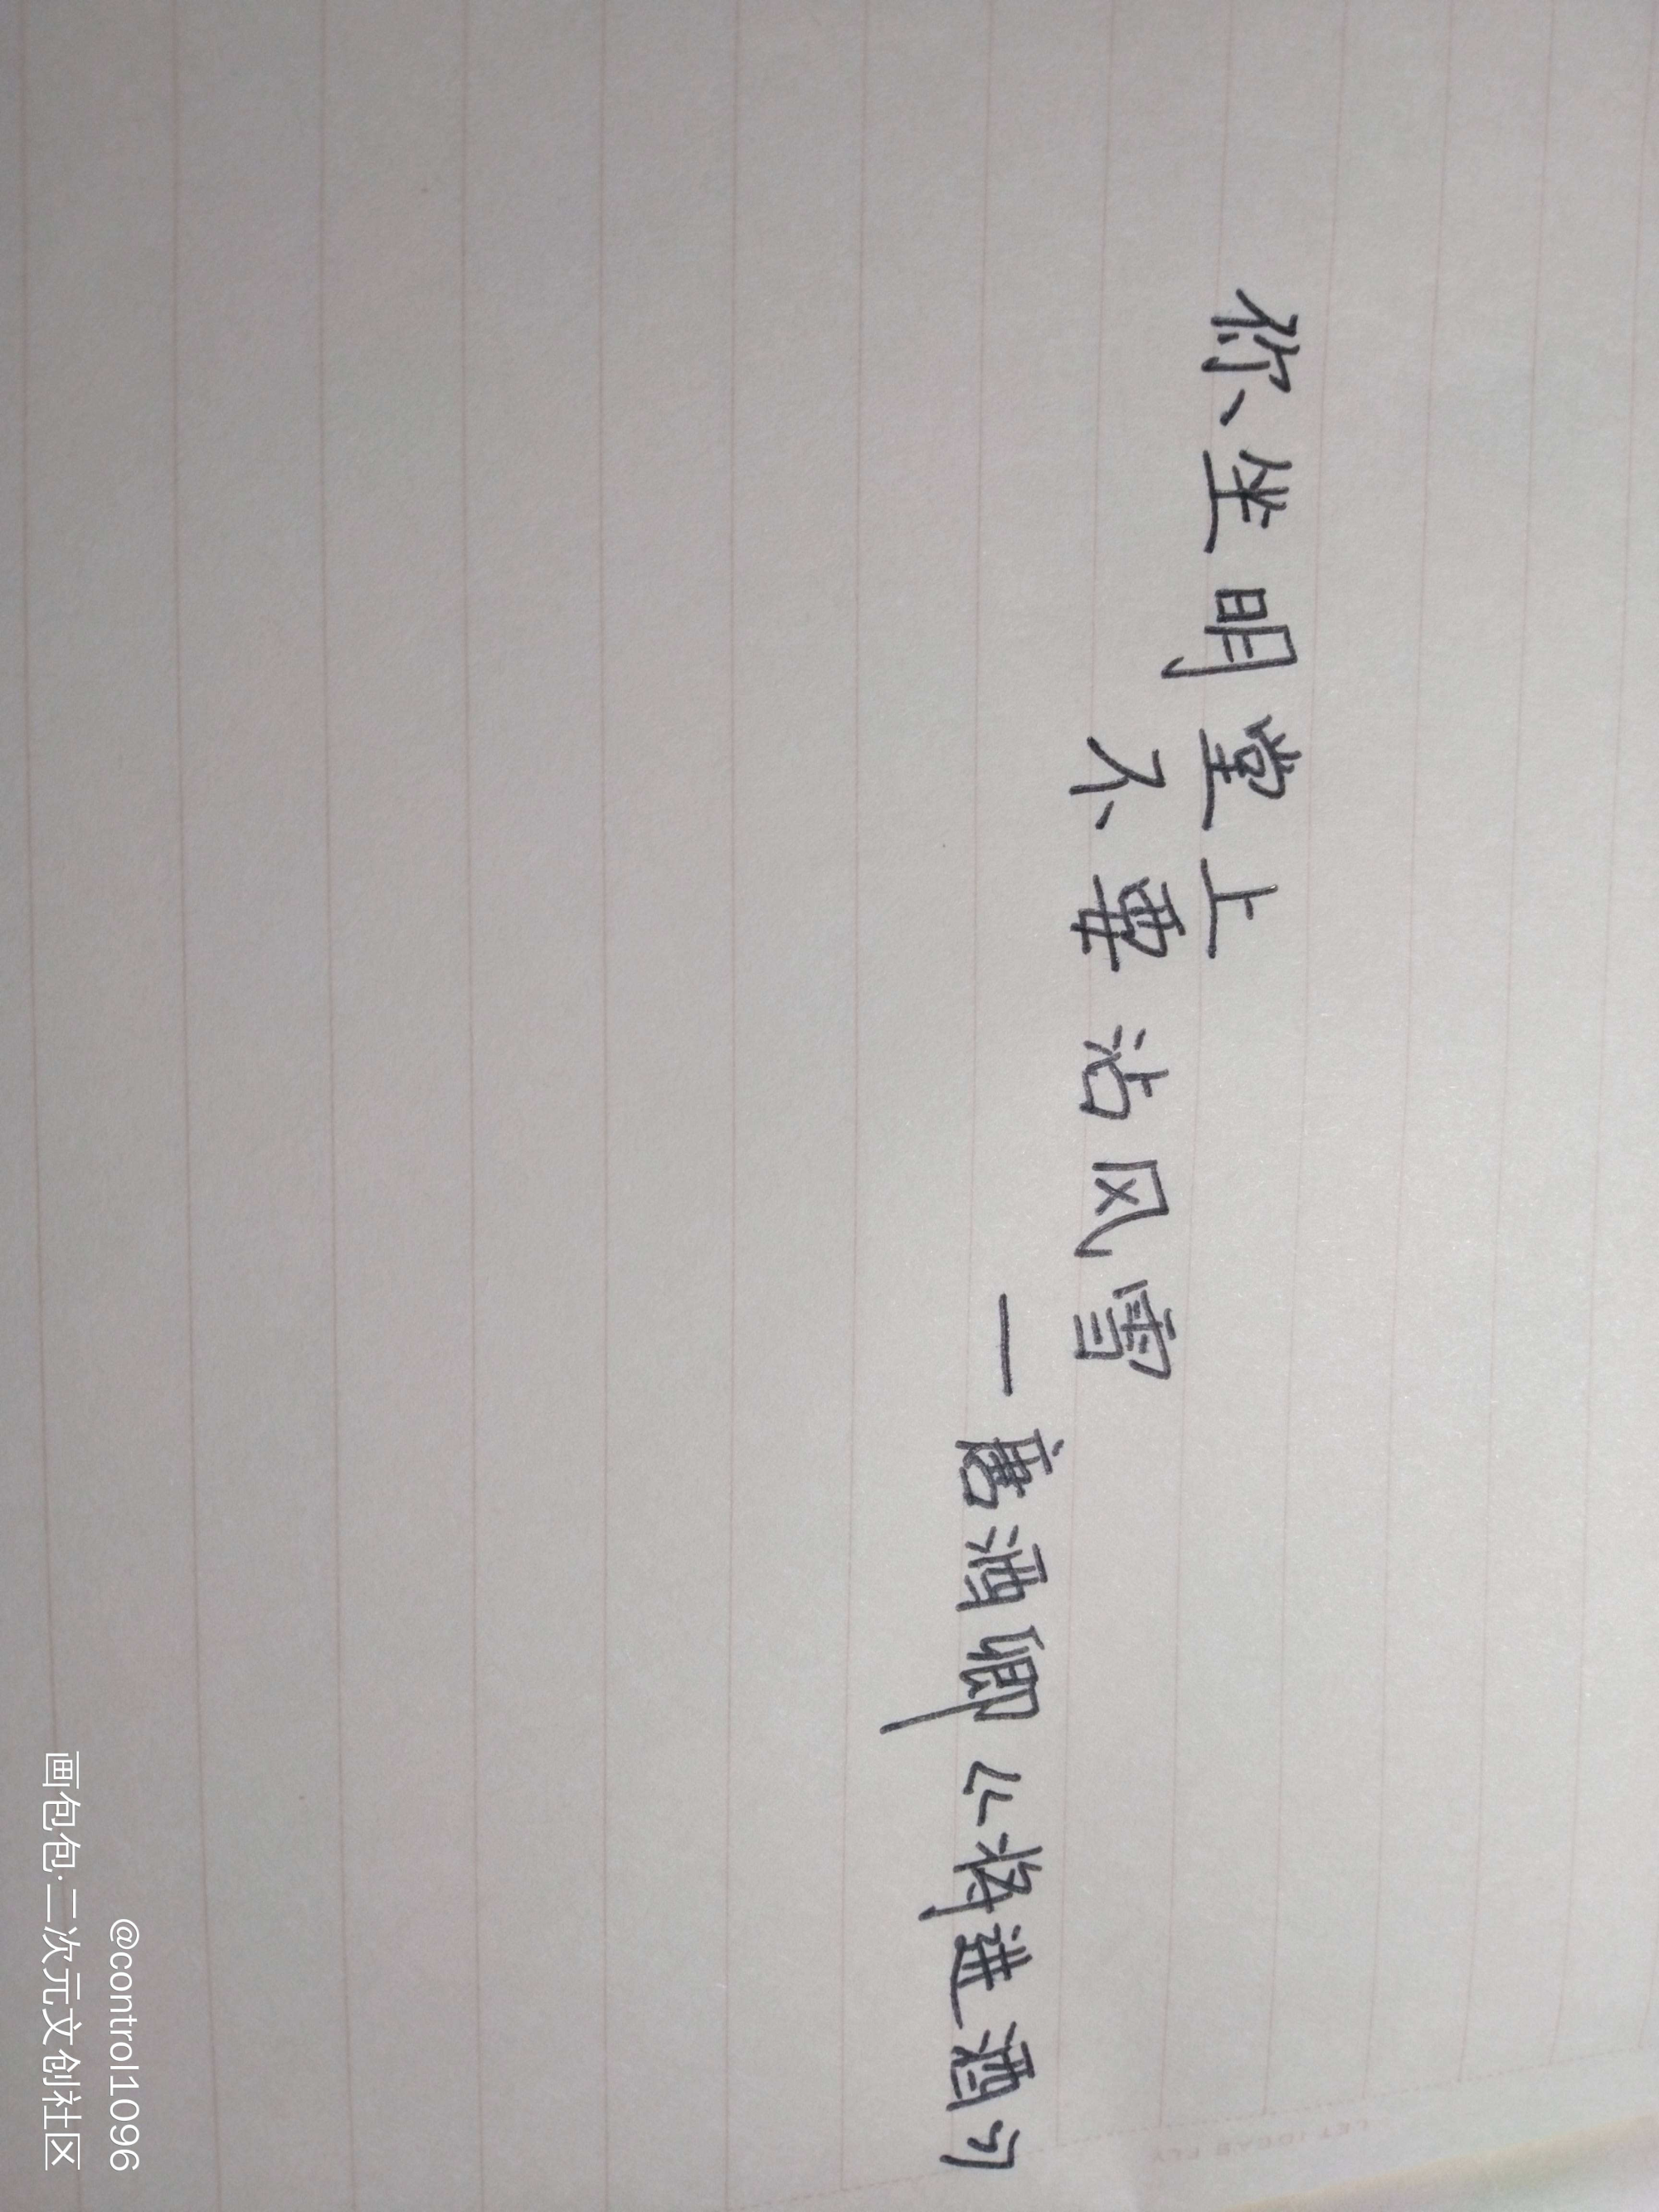 你坐明堂上
不要沾风雪
一唐酒卿《将进酒》
@control1096
画包包·二次元文创社区